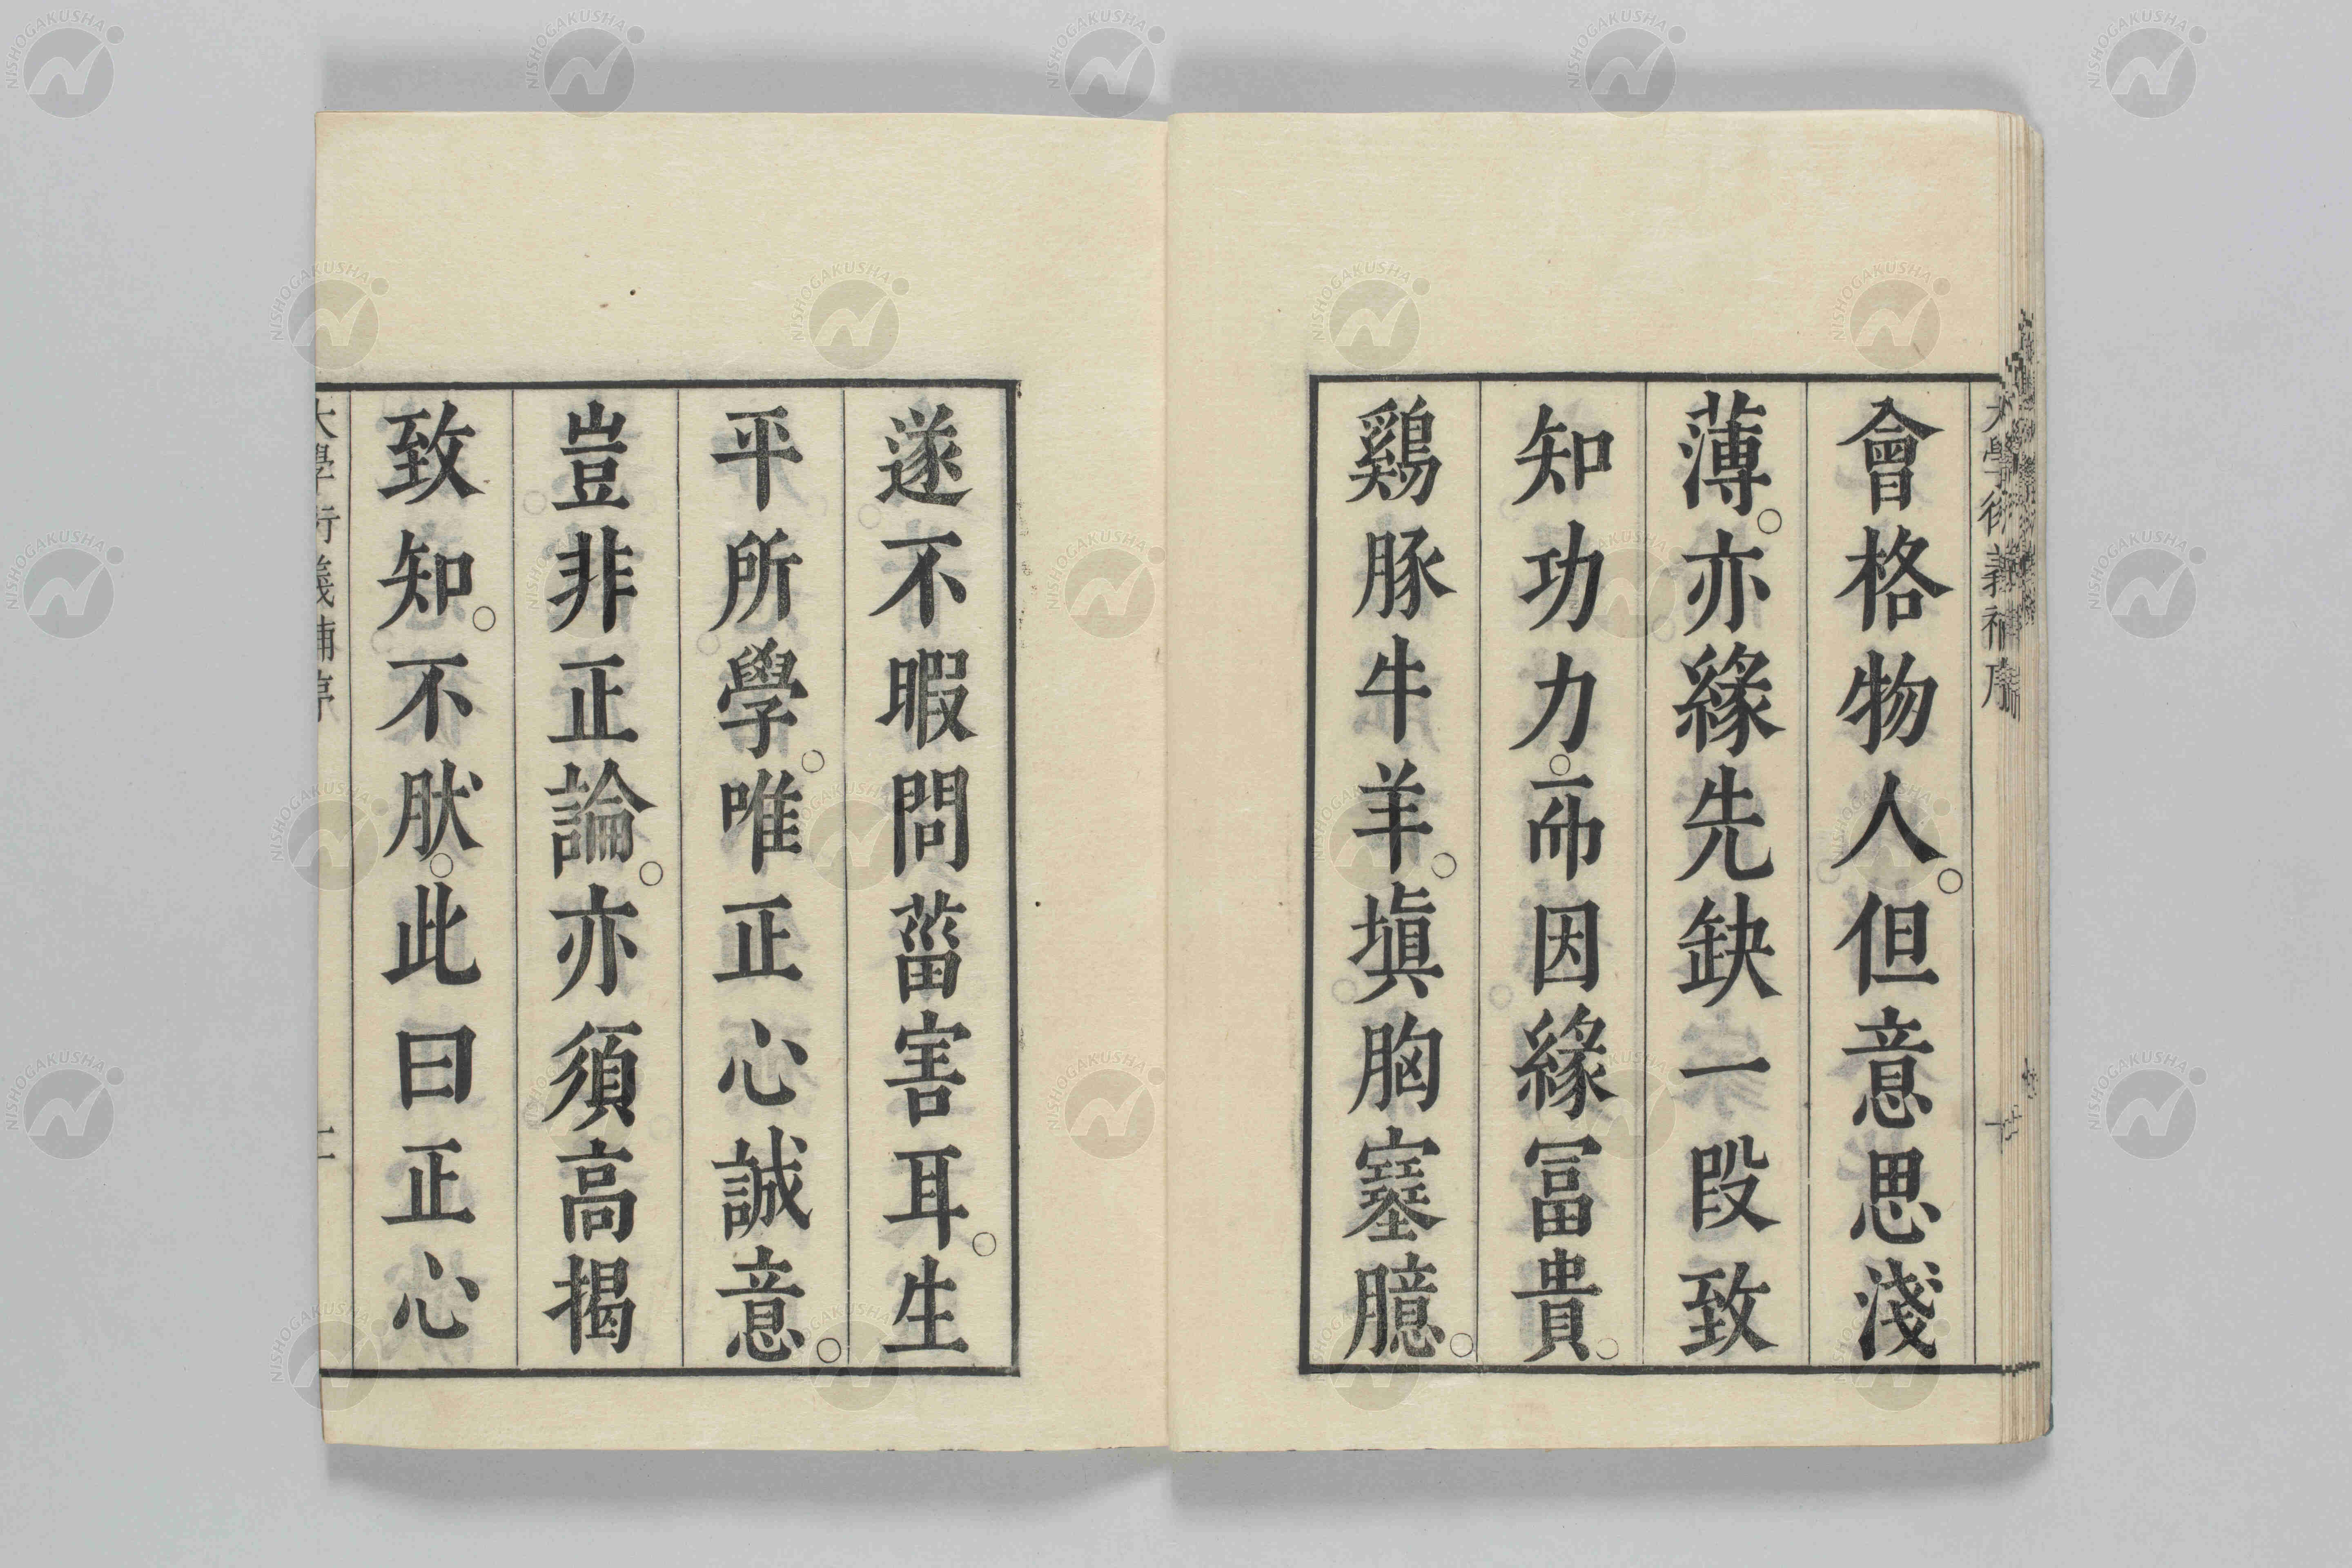 大學衍義補序
會格物人。但意思淺
薄。亦緣先缺一段致
知功力。而因緣冨貴。
鷄豚牛羊。塡胸塞臆。
遂不暇問菑害耳。生
平所學。唯正心誠意。
豈非正論。亦須高揭
致知。不肰。此曰正心
大學衍義補序
NISHOGAKUSHA